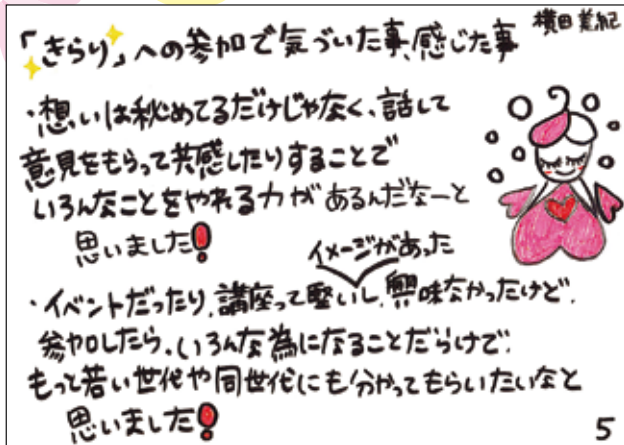 「きらり」への参加で気づいた事、感じた事
横田美紀
・想いは秘めてるだけじゃなく、話して
意見をもらって共感したりすることで
いろんなことをやれる力があるんだなーと
思いました!
イメージがあった
・イベントだったり、講座って堅いし、興味なかったけど、
参加したら、いろんな為になることだらけで、
もっと若い世代や同世代にも分かってもらいたいなと
思いました!
5